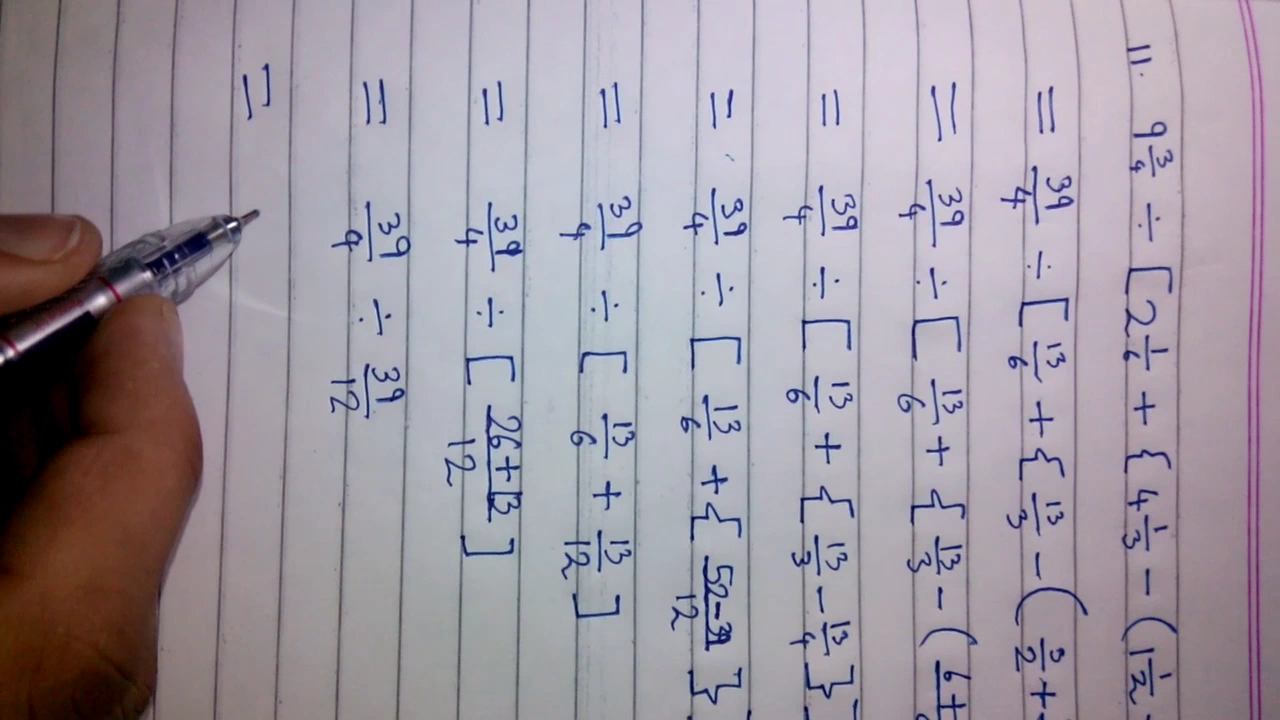 11. 9 3/4 ÷ [2 1/6 + {4 1/3 - (1 1/2
= 39/4 ÷ [13/6 + {13/3 - (3/2 +
= 39/4 ÷ [13/6 + {13/3 - (6+
= 39/4 ÷ [13/6 + {13/3 - 13/4}
= 39/4 ÷ [13/6 + {52-39/12}
= 39/4 ÷ [13/6 + 13/12]
= 39/4 ÷ [26+13/12]
= 39/4 ÷ 39/12
=